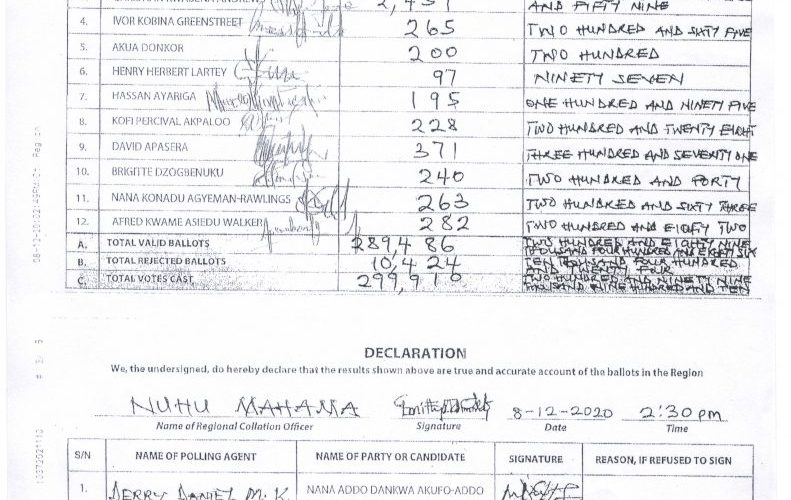 AND FIFTY NINE
4. IVOR KOBINA GREENSTREET 265 TWO HUNDRED AND SIXTY FIVE
5. AKUA DONKOR 200 TWO HUNDRED
6. HENRY HERBERT LARTEY 97 NINETY SEVEN
7. HASSAN AYARIGA 195 ONE HUNDRED AND NINETY FIVE
8. KOFI PERCIVAL AKPALOO 228 TWO HUNDRED AND TWENTY EIGHT
9. DAVID APASERA 371 THREE HUNDRED AND SEVENTY ONE
10. BRIGITTE DZOGBENUKU 240 TWO HUNDRED AND FORTY
11. NANA KONADU AGYEMAN-RAWLINGS 263 TWO HUNDRED AND SIXTY THREE
12. AFRED KWAME ASIEDU WALKER 282 TWO HUNDRED AND EIGHTY TWO
A. TOTAL VALID BALLOTS 289,486 TWO HUNDRED AND EIGHTY NINE
THOUSAND FOUR HUNDRED AND EIGHTY SIX
B. TOTAL REJECTED BALLOTS 10,424 TEN THOUSAND FOUR HUNDRED
AND TWENTY FOUR
C. TOTAL VOTES CAST 299,910 TWO HUNDRED AND NINETY NINE
THOUSAND NINE HUNDRED AND TEN
DECLARATION
We, the undersigned, do hereby declare that the results shown above are true and accurate account of the ballots in the Region
NUHU MAHAMA 8-12-2020 2:30pm
Name of Regional Collation Officer Signature Date Time
S/N NAME OF POLLING AGENT NAME OF PARTY OR CANDIDATE SIGNATURE REASON, IF REFUSED TO SIGN
1. DERRY DANIEL M.K. NANA ADDO DANKWA AKUFO-ADDO